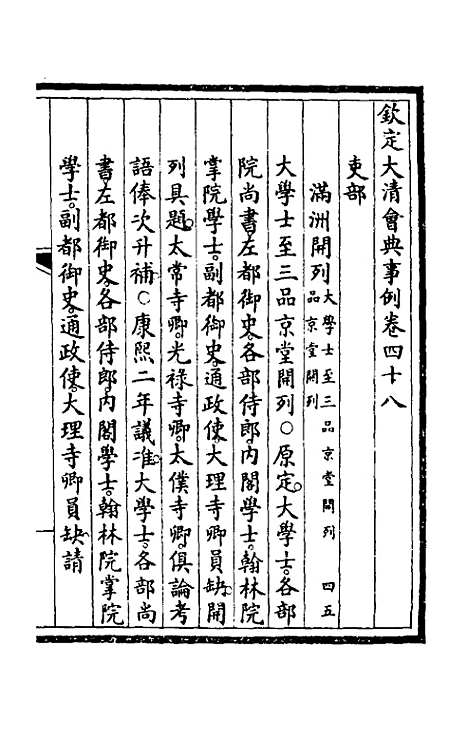 欽定大清會典事例卷四十八
吏部
滿洲開列大學士至三品京堂開列 四五品京堂開列
大學士至三品京堂開列○原定。大學士。各部
院尚書。左都御史。各部侍郎。內閣學士。翰林院
掌院學士。副都御史。通政使。大理寺卿員缺。開
列具題。太常寺卿。光祿寺卿。太僕寺卿。俱論考
語俸次升補○康熙二年議准。大學士。各部尚
書。左都御史。各部侍郎。內閣學士。翰林院掌院
學士。副都御史。通政使。大理寺卿員缺。請